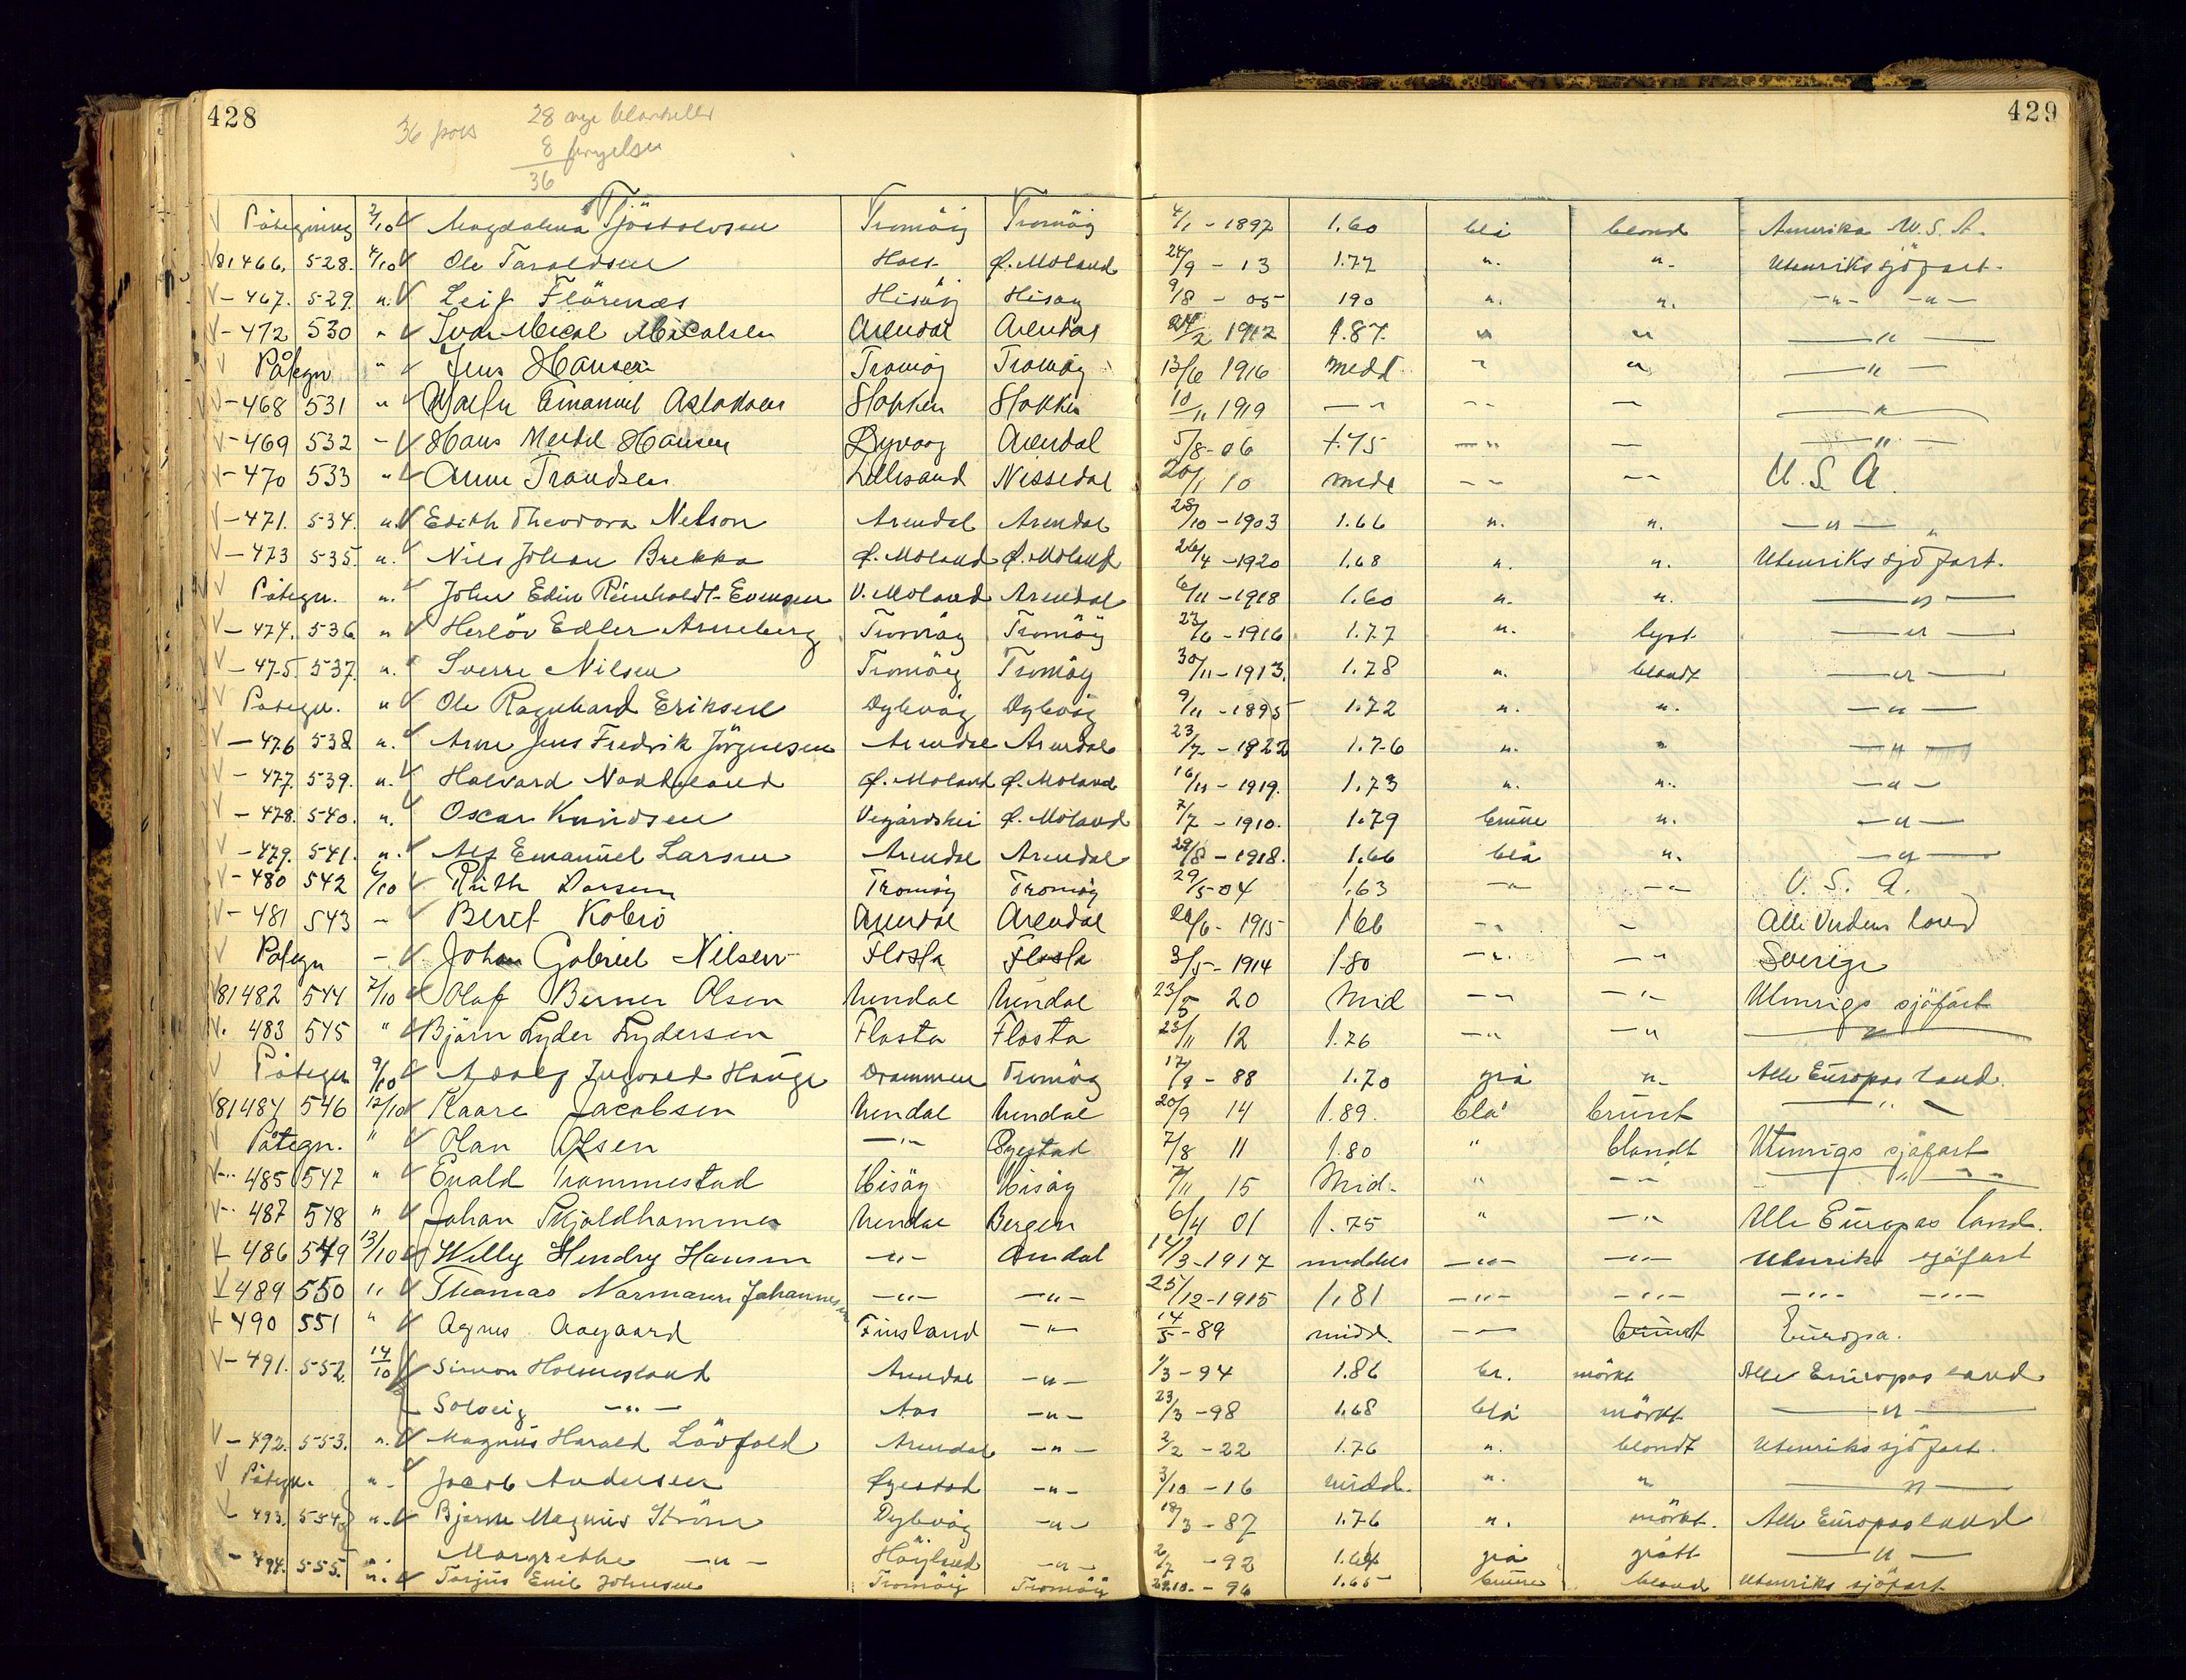 428
429
36 pass 28 nye blanketter
8 fornyelser
36
V Påtegning 2/10 Magdalena Tjöstolvsen Tromöy Tromöy 4/1 - 1897 1.60 blå blond Amerika U.S.A.
V 81466. 528. 4/10 Ole Taraldsen Holt Ø. Moland 24/9 - 13 1.77 " " Utenriks sjöfart.
V - 467. 529. " Leif Flörenæs Hisöy Hisöy 9/8 - 05 190 " " -"- -"-
V - 472 530 " Ivar Mical Micalsen Arendal Arendal 24/2 1912 1.87. " " -"-
V Påtegn " Jens Hansen Tromöy Tromöy 13/6 1916 medd " " -"-
V - 468 531 " Emanuel Aslaksen Stokken Stokken 10/11 1919 -"- -"- - -"-
V - 469 532 - Hans Hansen Dyvåg Arendal 5/8-06 1.75 -"- - -"-
V - 470 533 " Anne Trondsen Lillesand Nissedal 20/1 10 medd -"- -"- U.S.A.
V - 471. 534. " Edith Theodora Nelson Arendal Arendal 28/10 - 1903 1.66 " " -"-
V - 473 535. " Nils Johan Brekka Ø. Moland Ø. Moland 26/4 - 1920 1.68 " " Utenriks sjöfart.
V Påtegn. " John Edin Reinholdt-Evensen V. Moland Arendal 6/11 - 1918 1.60 " " -"-
V - 474. 536 " Herlöv Edler Arneberg Tromöy Tromöy 23/6 - 1916 1.77 " lyst -"-
V - 475. 537. " Sverre Nilsen Tromöy Tromöy 30/11 - 1913. 1.78 " blondt -"-
V Påtegn. " Ole Ragnhard Eriksen Dybvåg Dybvåg 9/11 - 1895 1.72 " " -"-
V - 476 538 " Arne Jens Fredrik Jörgensen Arendal Arendal 23/7 - 1922 1.76 " " -"-
V - 477. 539. " Halvard Ø. Moland Ø. Moland 16/11 - 1919. 1.73 " " -"-
V - 478. 540. " Oscar Knudsen Vegårdshei Ø. Moland 7/7 - 1910. 1.79 brune " -"-
V - 479. 541. " Alf Emanuel Larsen Arendal Arendal 29/8 - 1918. 1.66 blå " -"-
V - 480 542 6/10 Ruth Larsen Tromöy Tromöy 29/5-04 1.63 -"- -"- U.S.A.
V - 481 543 - Berit Kobro Arendal Arendal 26/6 - 1915 166 -"- - Alle Verdens land
V Påtegn - Johan Gabriel Nilsen Flosta Flosta 3/5 - 1914 1.80 -"- -"- Sverige
V 81482 544 7/10 Olaf Berner Olsen Arendal Arendal 23/5 20 Mid -"- -"- Utenrigs sjöfart
V. 483 545 " Björn Lyder Lydersen Flosta Flosta 23/11 12 1.76 -"- -"- -"-
V Påtegn 9/10 Adolf Ingvald Hauge Drammen Tromöy 17/9 - 88 1.70 grå " Alle Europas land.
V 81484 546 12/10 Kaare Jacobsen Arendal Arendal 20/9 14 1.89. blå brunt -"-
V Påtegn. " Olav Olsen -"- Öyestad 7/8 11 1.80 " blondt Utenrigs sjöfart
V - 485 547 " Evald Trommestad Hisöy Hisöy 7/11 15 Mid. " -"- -"-
V - 487 548 " Johan Skjoldhammer Arendal Bergen 6/4 01 1.75 " -"- Alle Europas land.
V - 486 549 13/10 Willy Hendry Hansen -"- Arendal 12/3-1917 middels -"- -"- Utenriks sjöfart
V - 489 550 " Thomas Normann Johannesen -"- -"- 25/12-1915 1.81 -"- -"- -"- -"-
V - 490 551 " Agnes Aagaard Finsland -"- 14/5 - 89 midd. -"- brunt Europa.
V - 491. 552. 14/10 Simon Holmesland Arendal -"- 1/3 - 94 1.86 br. mörkt Alle Europas land
Solveig -"- Aas -"- 23/3 - 98 1.68 blå mörkt -"-
V - 492. 553. " Magnus Harald Lövfold Arendal -"- 2/2 - 22 1.76 " blondt Utenriks sjöfart.
V Påtegn. " Jacob Andersen Øyestad -"- 3/10 - 16 midd. " " -"-
V - 493. 554. " Bjarne Magnus Ström Dybvåg -"- 18/3 - 87 1.76 " mörkt. Alle Europas land
Margrethe -"- Höyland -"- 2/7 - 92 1.64 grå grått -"-
- 494. 555. " Torjus Emil Johnsen Tromöy Tromöy 29.10. - 96 1.65 brune blond Utenriks sjöfart